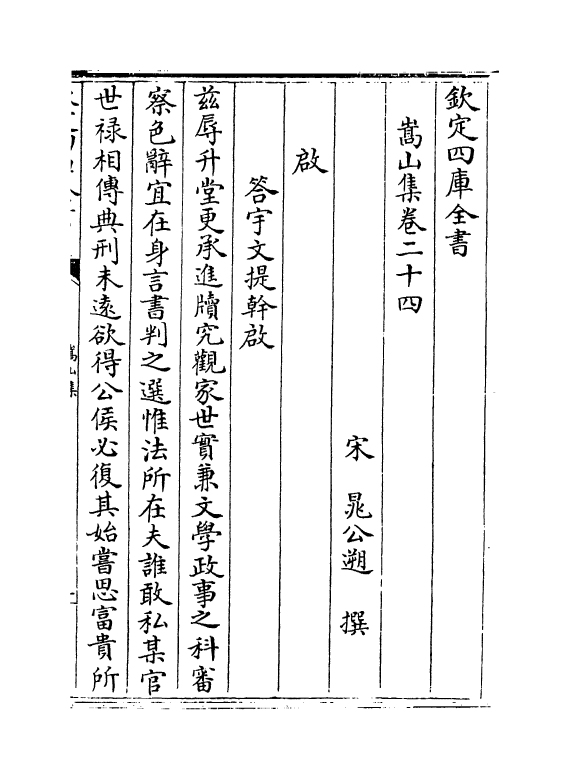 欽定四庫全書
嵩山集卷二十四
宋 晁公遡 撰
啟
答宇文提幹啟
兹辱升堂更承進牘究觀家世實兼文學政事之科審
察色辭宜在身言書判之選惟法所在夫誰敢私某官
世禄相傳典刑未逺欲得公侯必復其始嘗思富貴所
嵩山集